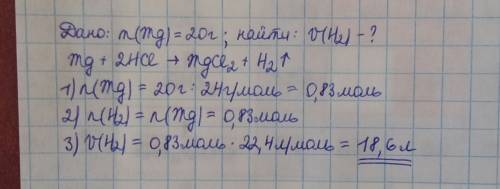 Дано: n(Mg) = 20г; найти: V(H₂) - ?
Mg + 2HCl → MgCl₂ + H₂↑
1) n(Mg) = 20г : 24г/моль = 0,83моль
2) n(H₂) = n(Mg) = 0,83моль
3) V(H₂) = 0,83моль · 22,4л/моль = 18,6л